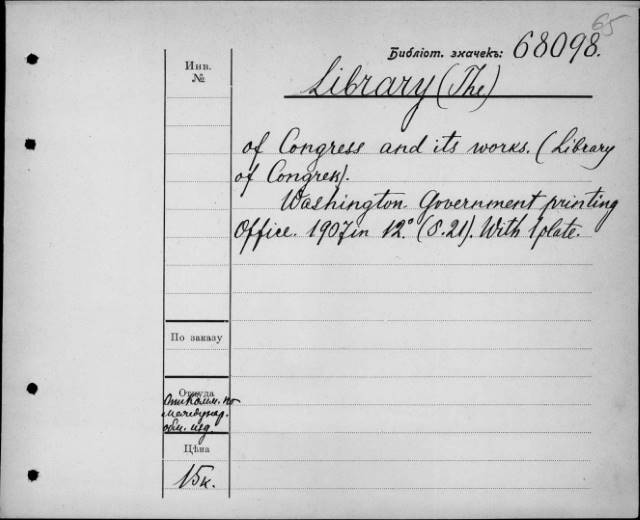 65
Библіот. значекъ: 68098.
Инв.
№
Library (The)
of Congress and its works. (Library
of Congress).
Washington. Government printing
Office. 1907 in 12.° (S. 21). With 1 plate.
По заказу
Откуда
Отъ Комм. по
междунар.
обм. изд.
Цѣна
15 к.